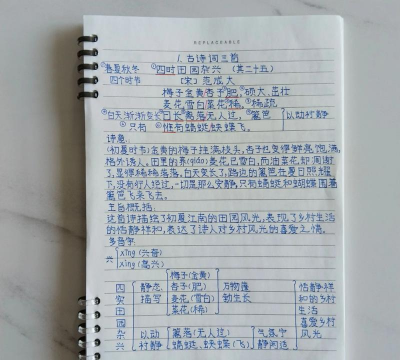 REPLACEABLE
1.古诗词三首
①春夏秋冬 ①四时田园杂兴(其二十五)
四个时节 [宋]范成大
梅子金黄杏子肥,硕大、茁壮
麦花雪白菜花稀。稀疏
白天渐渐变长 日长篱落无人过,篱笆
只有 惟有蜻蜓蛱蝶飞。
以动衬静
诗意:
(初夏时节)金黄的梅子挂满枝头,杏子也变得鲜亮饱满,
格外诱人。田里的荞(qiáo)麦花已雪白,而油菜花却凋谢
了,显得稀稀落落。白天变长了,路边的篱笆在夏日照耀
下,没有行人经过,一切是那么安静,只有蜻蜓和蝴蝶围着
篱笆飞来飞去。
主旨概括:
这首诗描绘了初夏江南的田园风光,表现了乡村生活
的恬静祥和,表达了诗人对乡村风光的喜爱之情。
多音字
兴
xīng(兴奋)
xìng(高兴)
四 梅子(金黄)
时 静态 杏子(肥) 万物蓬 恬静祥
田 描写 麦花(雪白) 勃生长 和的乡村
菜花(稀) 生活
园 喜爱乡村
杂 以动 篱落(无人过) 气氛宁 风光
兴 衬静 蜻蜓、蛱蝶(飞) 静闲适